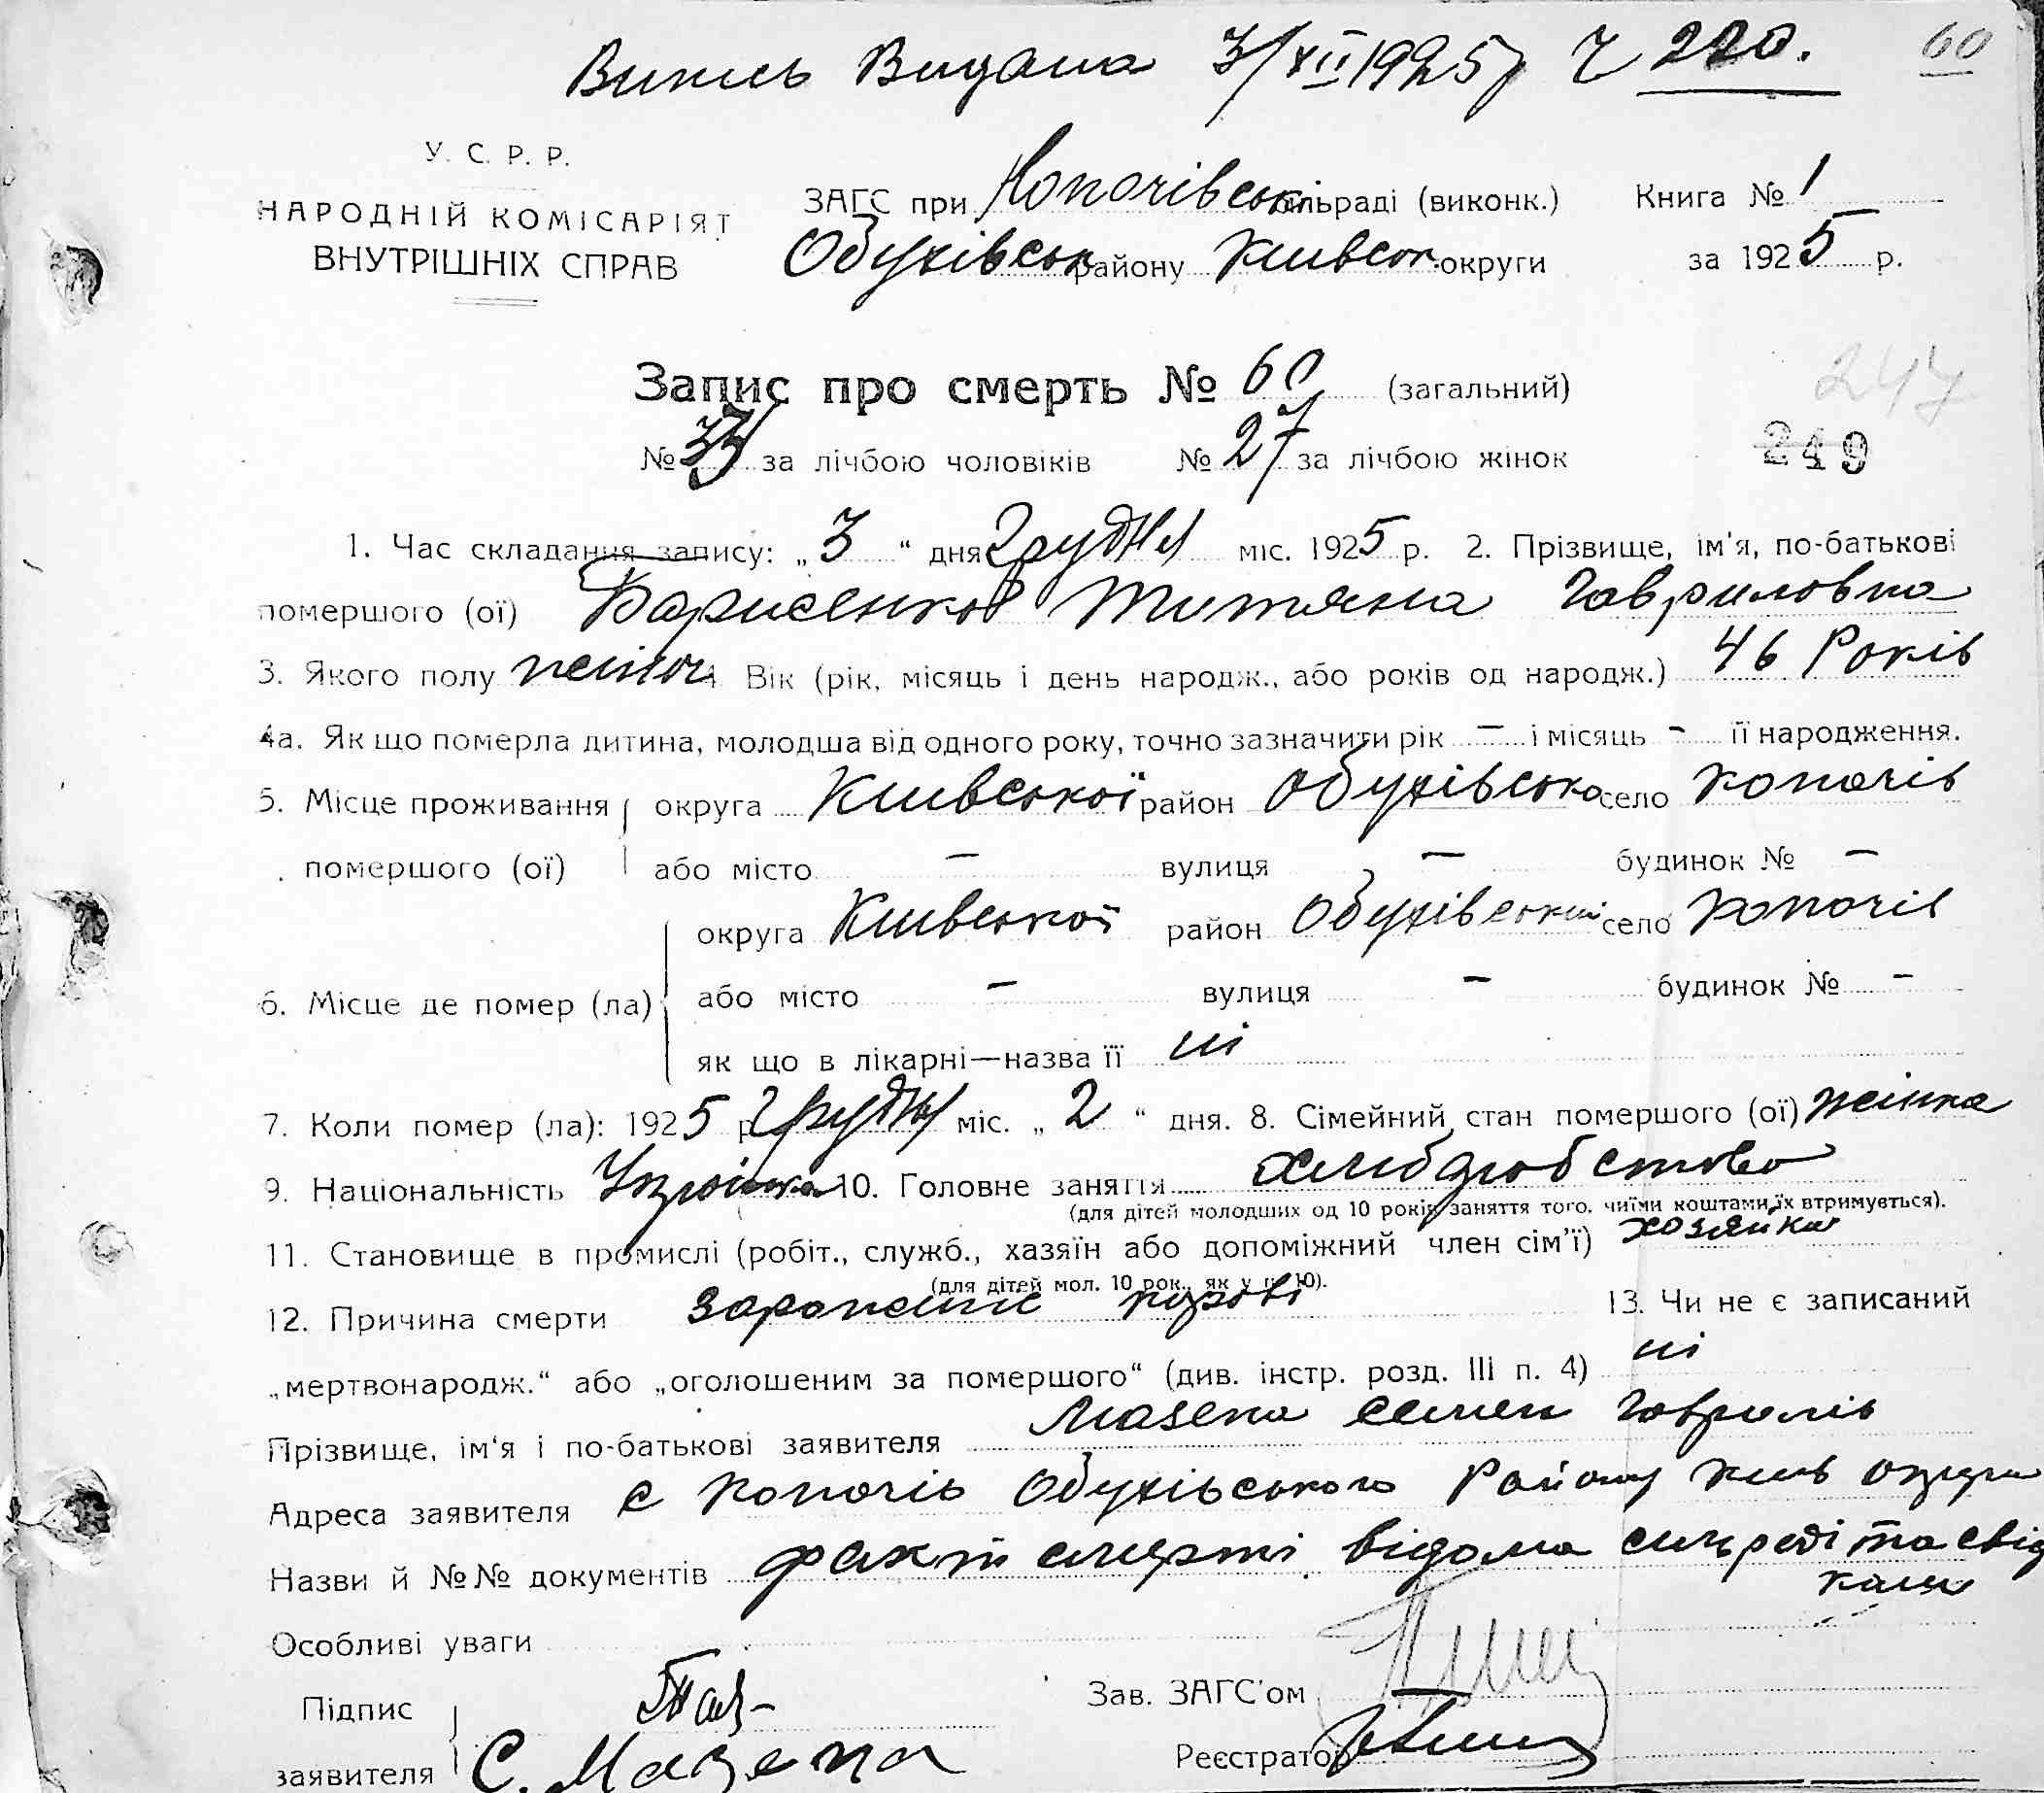 Випись Видана 3/XII 1925 р Ч 220. 60
У. С. Р. Р.
НАРОДНІЙ КОМІСАРІЯТ
ВНУТРІШНІХ СПРАВ
ЗАГС при Копачівськ сільраді (виконк.) Книга № 1
Обухівськ району Київськ. округи за 1925 р.
Запис про смерть № 60 (загальний)
247
№ 33 за лічбою чоловіків № 27 за лічбою жінок
249
1. Час складання запису: „3“ дня Грудня міс. 1925 р. 2. Прізвище, ім'я, по-батькові
помершого (ої) Борисенкова Титяна Гавриловна
3. Якого полу жіноч 4 Вік (рік, місяць і день народж., або років од народж.) 46 Років
4а. Як що померла дитина, молодша від одного року, точно зазначити рік – і місяць - її народження.
5. Місце проживання округа Київської район Обухівсько село Копачів
помершого (ої) або місто – вулиця – будинок № –
округа Київської район Обухівський село Копачів
6. Місце де помер (ла) або місто – вулиця – будинок № –
як що в лікарні—назва її ні
7. Коли помер (ла): 1925 р Грудня міс. „2“ дня. 8. Сімейний стан помершого (ої) жінка
9. Національність Українка 10. Головне заняття хлібробство
(для дітей молодших од 10 років заняття того, чиїми коштами їх втримується).
11. Становище в промислі (робіт., служб., хазяїн або допоміжний член сім'ї) хозяйка
(для дітей мол. 10 рок., як у п. 10).
12. Причина смерти зараженіє крові 13. Чи не є записаний
„мертвонародж.“ або „оголошеним за помершого“ (див. інстр. розд. III п. 4) ні
Прізвище, ім'я і по-батькові заявителя Мазепа Семен Гаврилів
Адреса заявителя с Копачів Обухівського Району Київ округи
Назви й №№ документів факт смерті відома сильреді та свід
ками
Особливі уваги
Підпис Зав. ЗАГС'ом
заявителя С. Мазепа Реєстратор